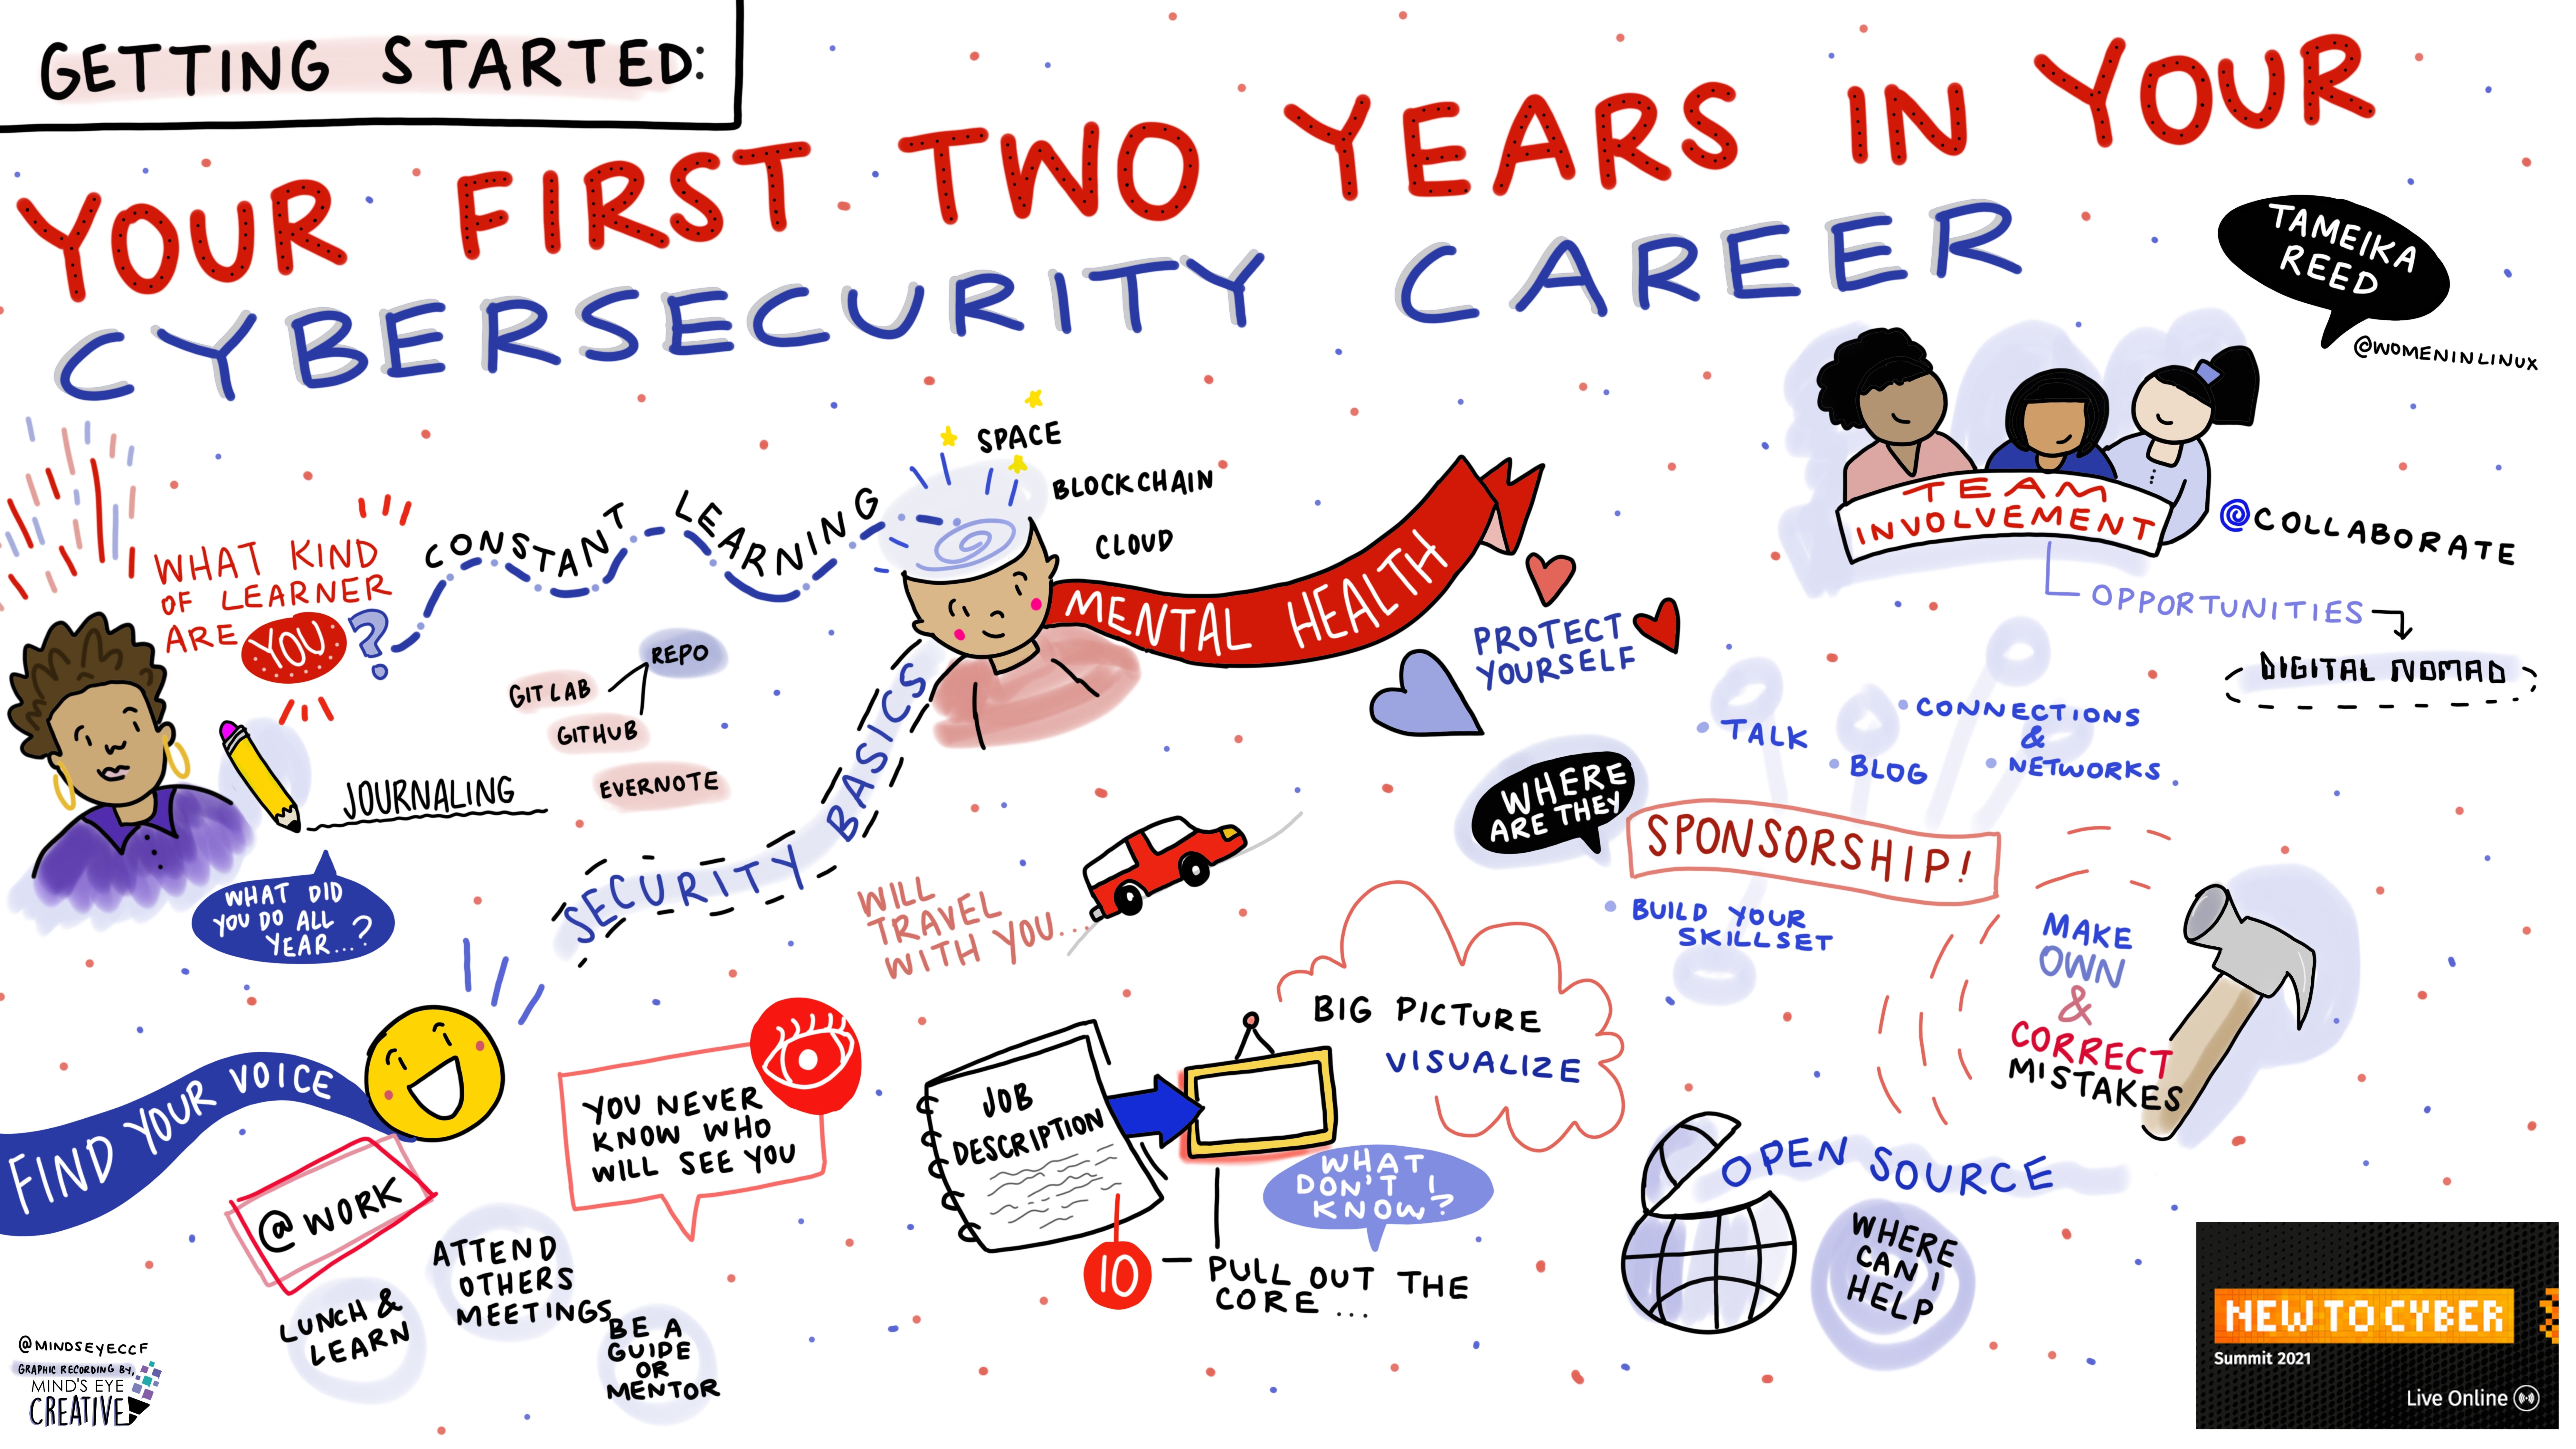 GETTING STARTED:
YOUR FIRST TWO YEARS IN YOUR
CYBERSECURITY CAREER
TAMEIKA
REED
@WOMENINLINUX
WHAT KIND
OF LEARNER
ARE YOU ?
CONSTANT LEARNING
SPACE
BLOCKCHAIN
CLOUD
MENTAL HEALTH
PROTECT
YOURSELF
TEAM
INVOLVEMENT
@COLLABORATE
OPPORTUNITIES
DIGITAL NOMAD
JOURNALING
REPO
GITLAB
GITHUB
EVERNOTE
WHAT DID
YOU DO ALL
YEAR...?
SECURITY BASICS
WILL
TRAVEL
WITH YOU...
WHERE
ARE THEY
SPONSORSHIP!
• TALK
• BLOG
• CONNECTIONS
&
• NETWORKS.
• BUILD YOUR
SKILLSET
MAKE
OWN
&
CORRECT
MISTAKES
FIND YOUR VOICE
@ WORK
LUNCH &
LEARN
ATTEND
OTHERS
MEETINGS
BE A
GUIDE
OR
MENTOR
YOU NEVER
KNOW WHO
WILL SEE YOU
JOB
DESCRIPTION
BIG PICTURE
VISUALIZE
WHAT
DON'T I
KNOW?
10 — PULL OUT THE
CORE ...
OPEN SOURCE
WHERE
CAN I
HELP
@MINDSEYECCF
GRAPHIC RECORDING BY,
MIND'S EYE
CREATIVE
NEW TO CYBER
Summit 2021
Live Online